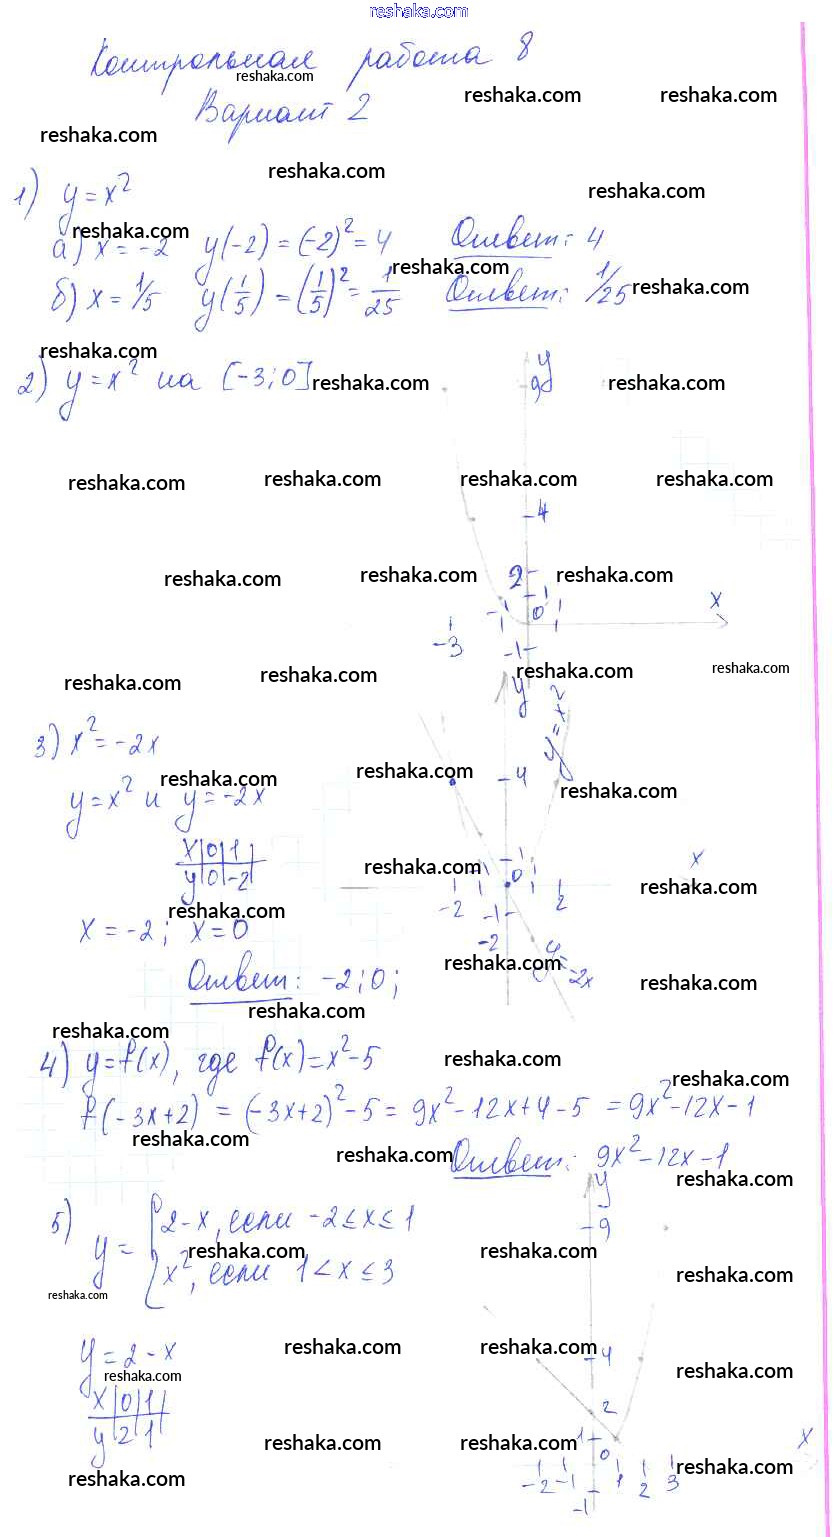 reshaka.com
Контрольная работа 8
reshaka.com
reshaka.com reshaka.com
Вариант 2
reshaka.com
reshaka.com
reshaka.com
1) y = x²
reshaka.com
а) x = -2 y(-2) = (-2)² = 4 Ответ: 4
reshaka.com
б) x = 1/5 y(1/5) = (1/5)² = 1/25 Ответ: 1/25
reshaka.com
reshaka.com
2) y = x² на [-3; 0]
reshaka.com reshaka.com
y
9
reshaka.com reshaka.com reshaka.com reshaka.com
4
reshaka.com reshaka.com reshaka.com
2
1
x
-3 -1 0 1
-1
reshaka.com reshaka.com reshaka.com reshaka.com
y
y = x²
3) x² = -2x
reshaka.com reshaka.com reshaka.com
4
y = x² и y = -2x
x 0 1
y 0 -2
reshaka.com
reshaka.com
1
x
-2 -1 0 1 2
-1
-2
reshaka.com
x = -2; x = 0
y = -2x
reshaka.com
Ответ: -2; 0;
reshaka.com
reshaka.com
reshaka.com
4) y = f(x), где f(x) = x² - 5
reshaka.com
reshaka.com
f(-3x+2) = (-3x+2)² - 5 = 9x² - 12x + 4 - 5 = 9x² - 12x - 1
reshaka.com
reshaka.com
Ответ: 9x² - 12x - 1
reshaka.com
y
9
5) y = { 2 - x, если -2 ≤ x ≤ 1
x², если 1 < x ≤ 3
reshaka.com reshaka.com
reshaka.com
reshaka.com
y = 2 - x
reshaka.com reshaka.com
reshaka.com
4
reshaka.com
x 0 1
y 2 1
2
reshaka.com reshaka.com
1
x
0
reshaka.com
reshaka.com
-2 -1 1 2 3
-1